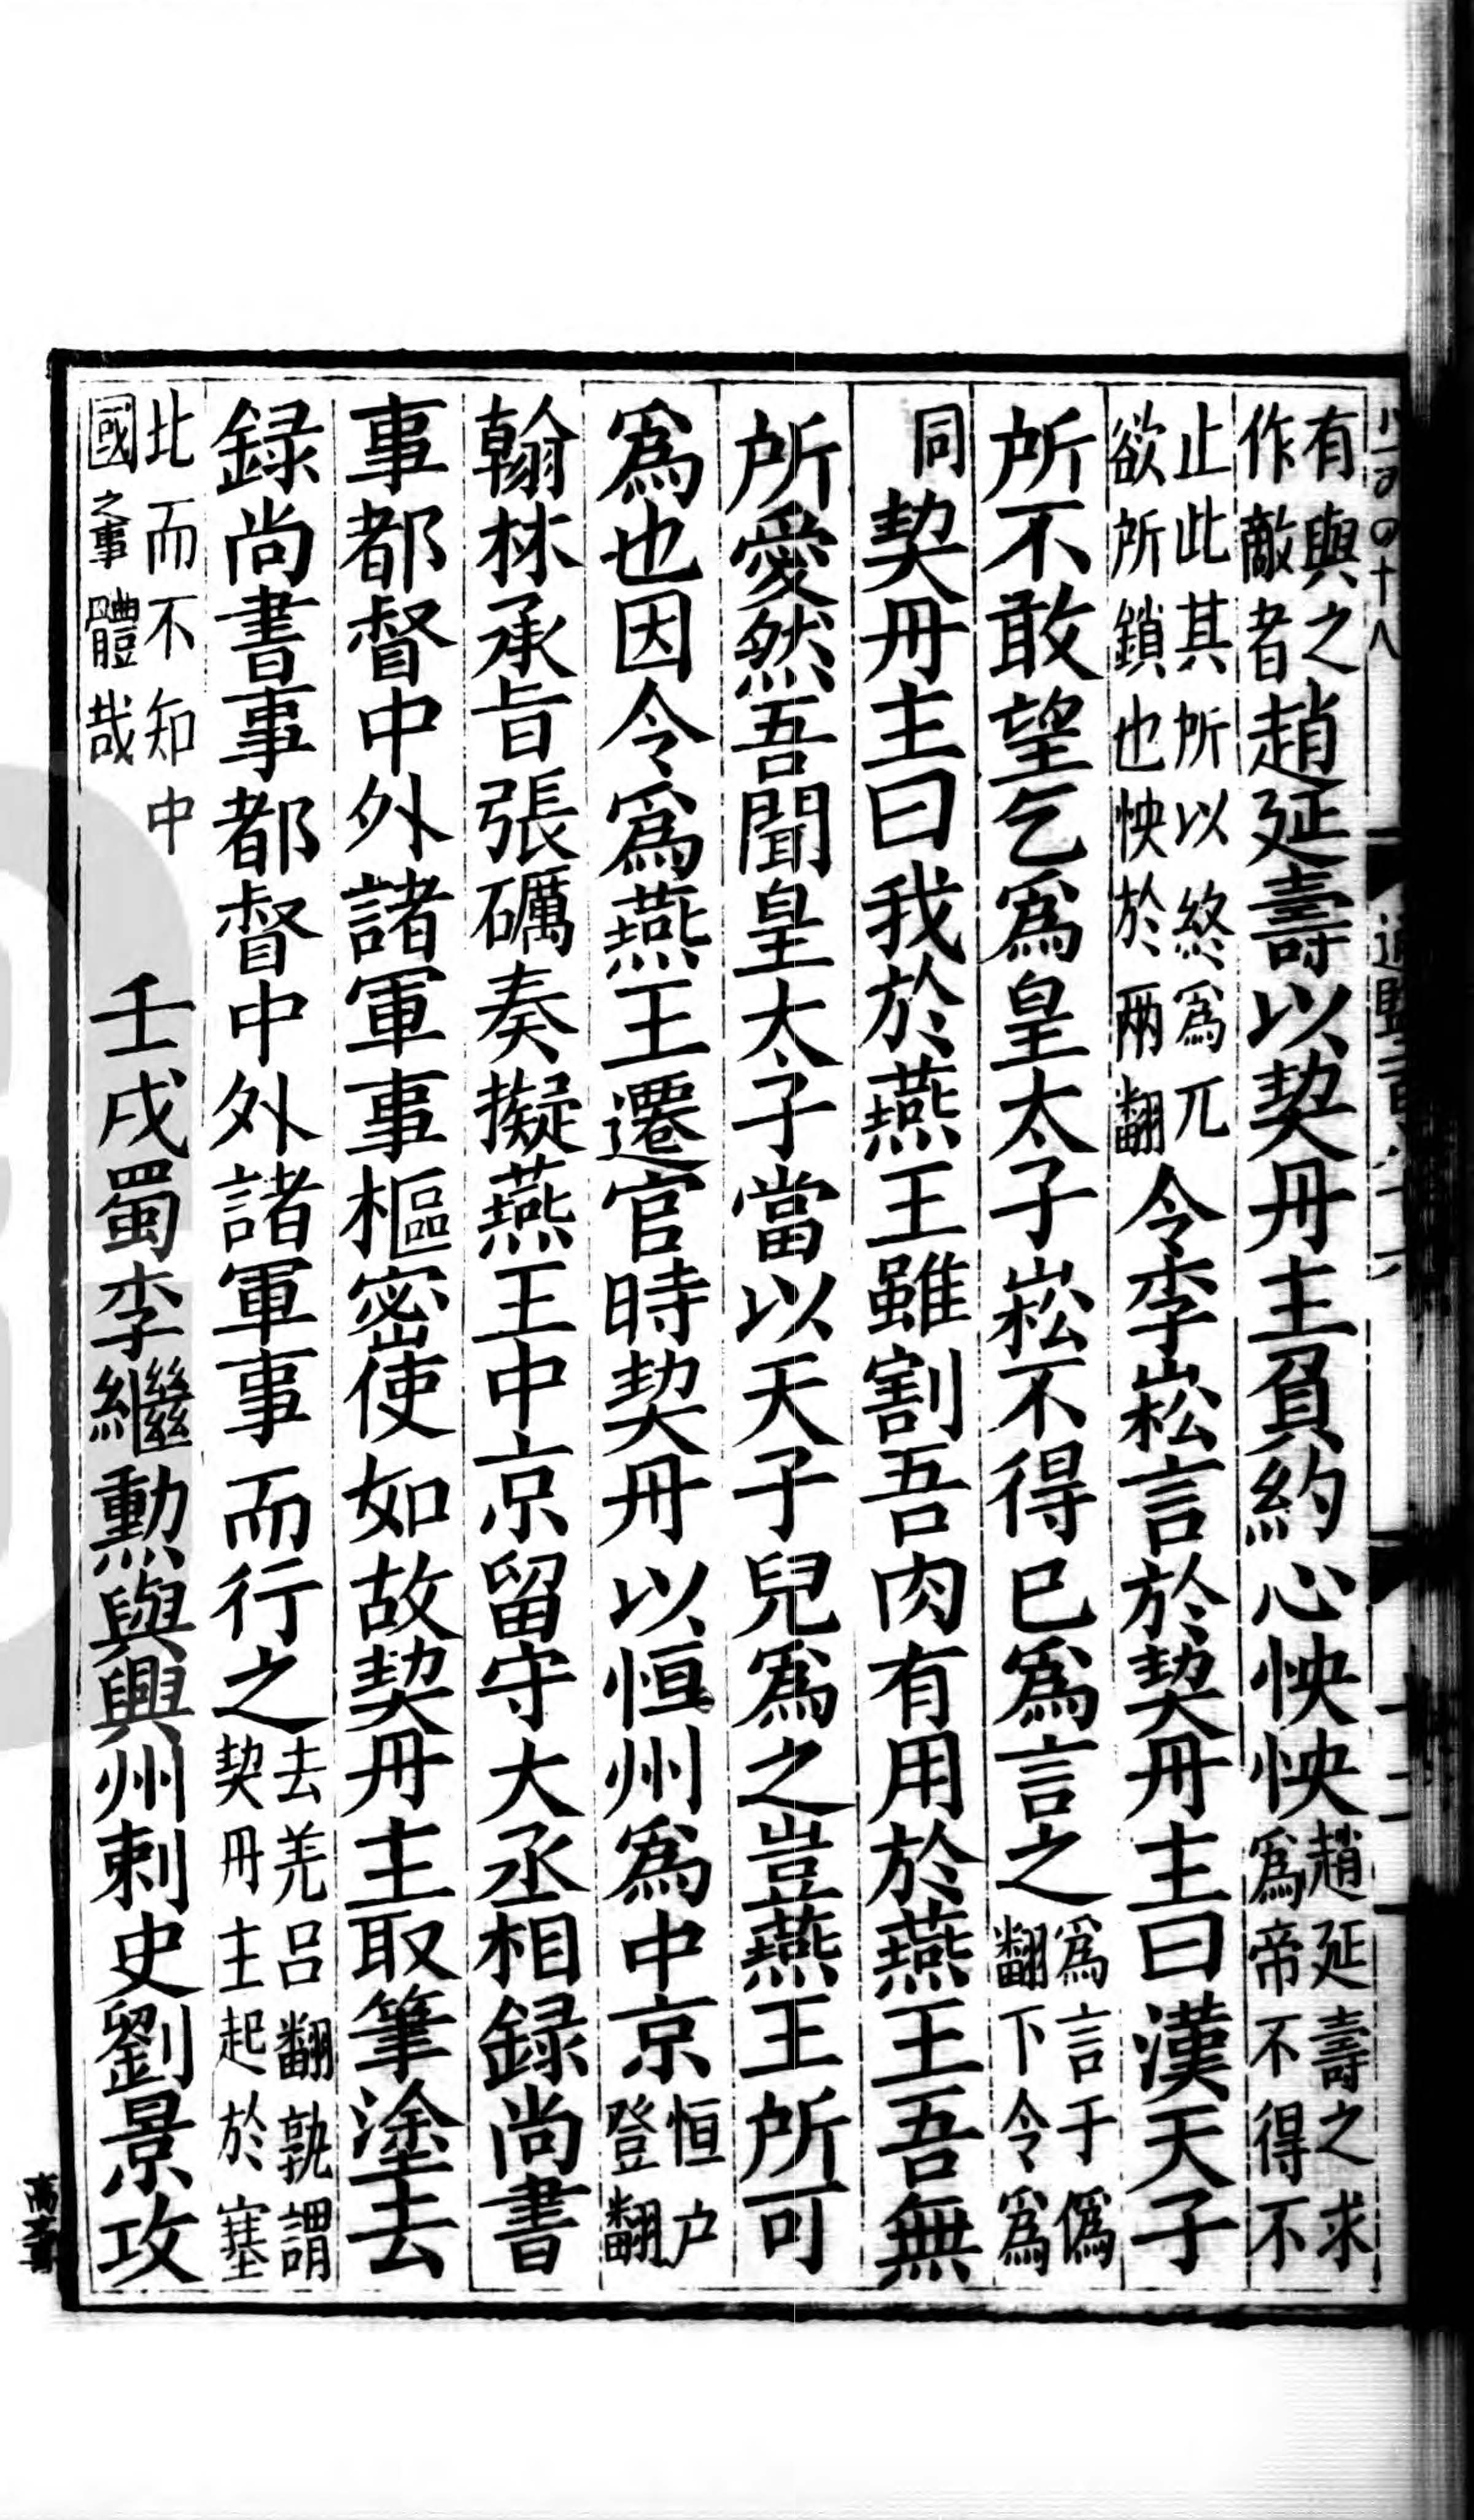 有與之作敵者趙延壽以契丹主負約心怏怏趙延壽之求爲帝不得不
止此其所以終爲兀欲所鎖也怏於兩翻令李崧言於契丹主曰漢天子
所不敢望乞爲皇太子崧不得已爲言之爲言于僞翻下令爲
同契丹主曰我於燕王雖割吾肉有用於燕王吾無
所愛然吾聞皇太子當以天子兒爲之豈燕王所可
爲也因令爲燕王遷官時契丹以恒州爲中京恒户登翻
翰林承旨張礪奏擬燕王中京留守大丞相録尚書
事都督中外諸軍事樞密使如故契丹主取筆塗去
録尚書事都督中外諸軍事而行之去羌呂翻孰謂契丹主起於塞
北而不知中國之事體哉壬戌蜀李繼勳與興州刺史劉景攻